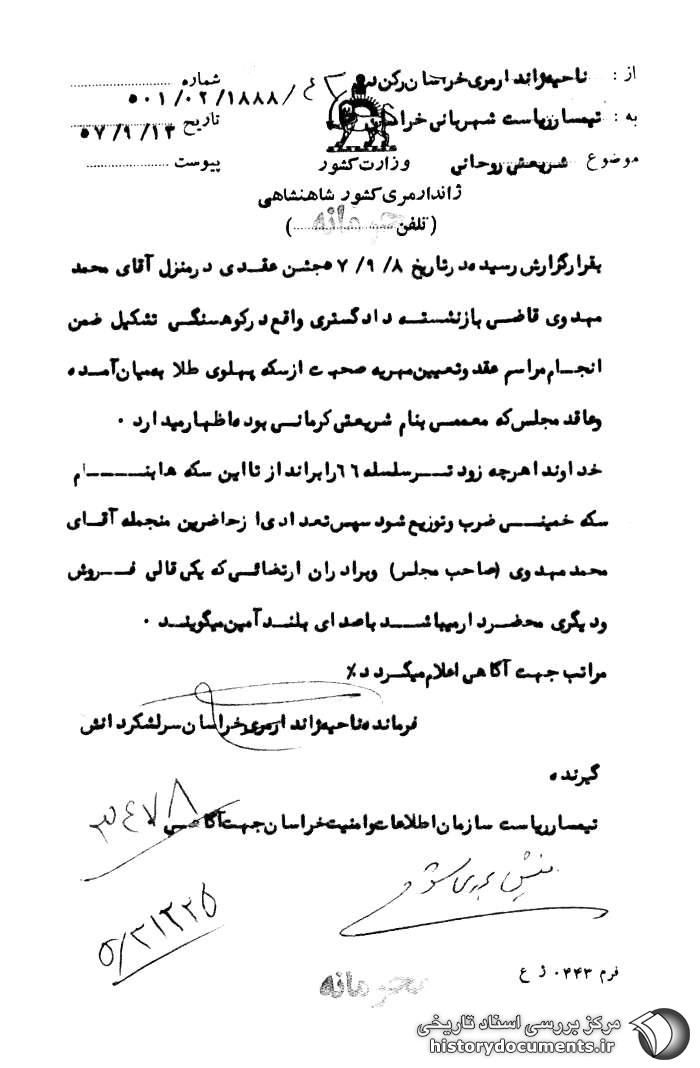 از : ناحیه ژاندارمری خراسان رکن دو
شماره ۵۰۱/۰۲/۱۸۸۸/۴۲
به : تیمسار ریاست شهربانی خراسان
تاریخ ۵۷/۹/۱۳
موضوع شریعتی روحانی
پیوست
وزارت کشور
ژاندارمری کشور شاهنشاهی
محرمانه
( تلفن )
بقرار گزارش رسیده در تاریخ ۵۷/۹/۸ جشن عقدی در منزل آقای محمد
مهدوی قاضی بازنشسته دادگستری واقع در کوهسنگی تشکیل ضمن
انجام مراسم عقد و تعیین مهریه صحبت از سکه پهلوی طلا بمیان آمده
و عاقد مجلس که معممی بنام شریعتی کرمانی بوده اظهار میدارد .
خداوند هر چه زود تر سلسله ۶۶ را براندازد تا این سکه ها بنام
سکه خمینی ضرب و توزیع شود سپس تعدادی از حاضرین منجمله آقای
محمد مهدوی (صاحب مجلس) و برادران ارتضائی که یکی قالی فروش
و دیگری محضردار میباشد با صدای بلند آمین میگویند .
مراتب جهت آگاهی اعلام میگردد٪
فرمانده ناحیه ژاندارمری خراسان سرلشکر دانش
گیرنده
تیمسار ریاست سازمان اطلاعات و امنیت خراسان جهت آگاهی
۳۴۷۸
۵/۳۱۲۲۵
فرم ۰۴۴۳ ژ ع
محرمانه
مرکز بررسی اسناد تاریخی
historydocuments.ir